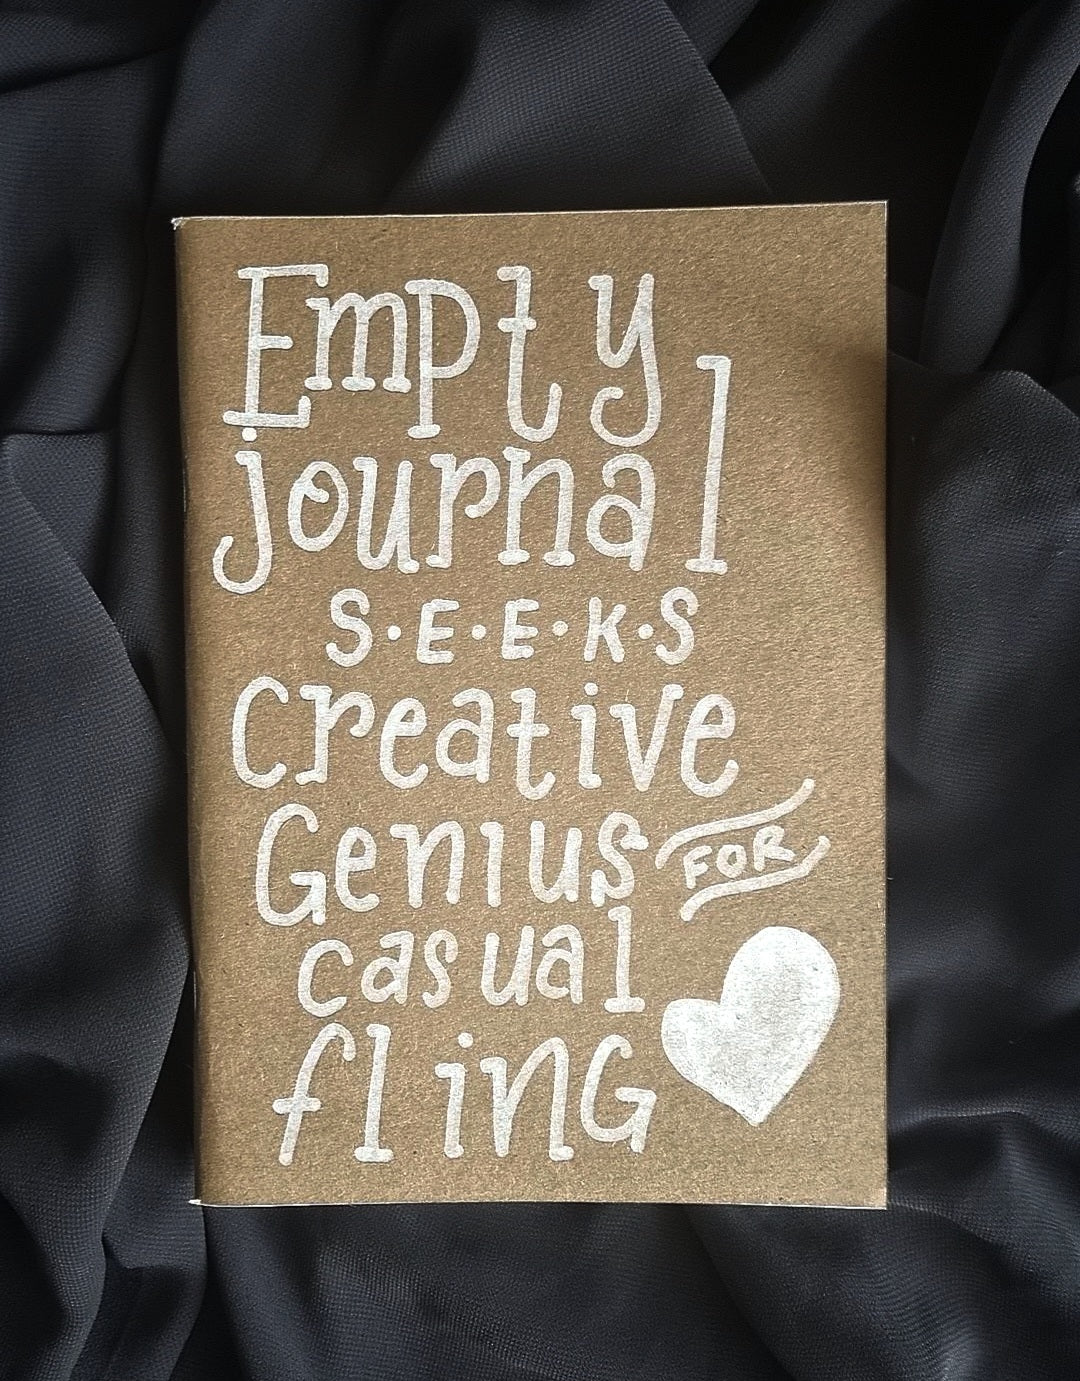 Empty
journal
S·E·E·K·S
Creative
Genius FOR
casual
flinG